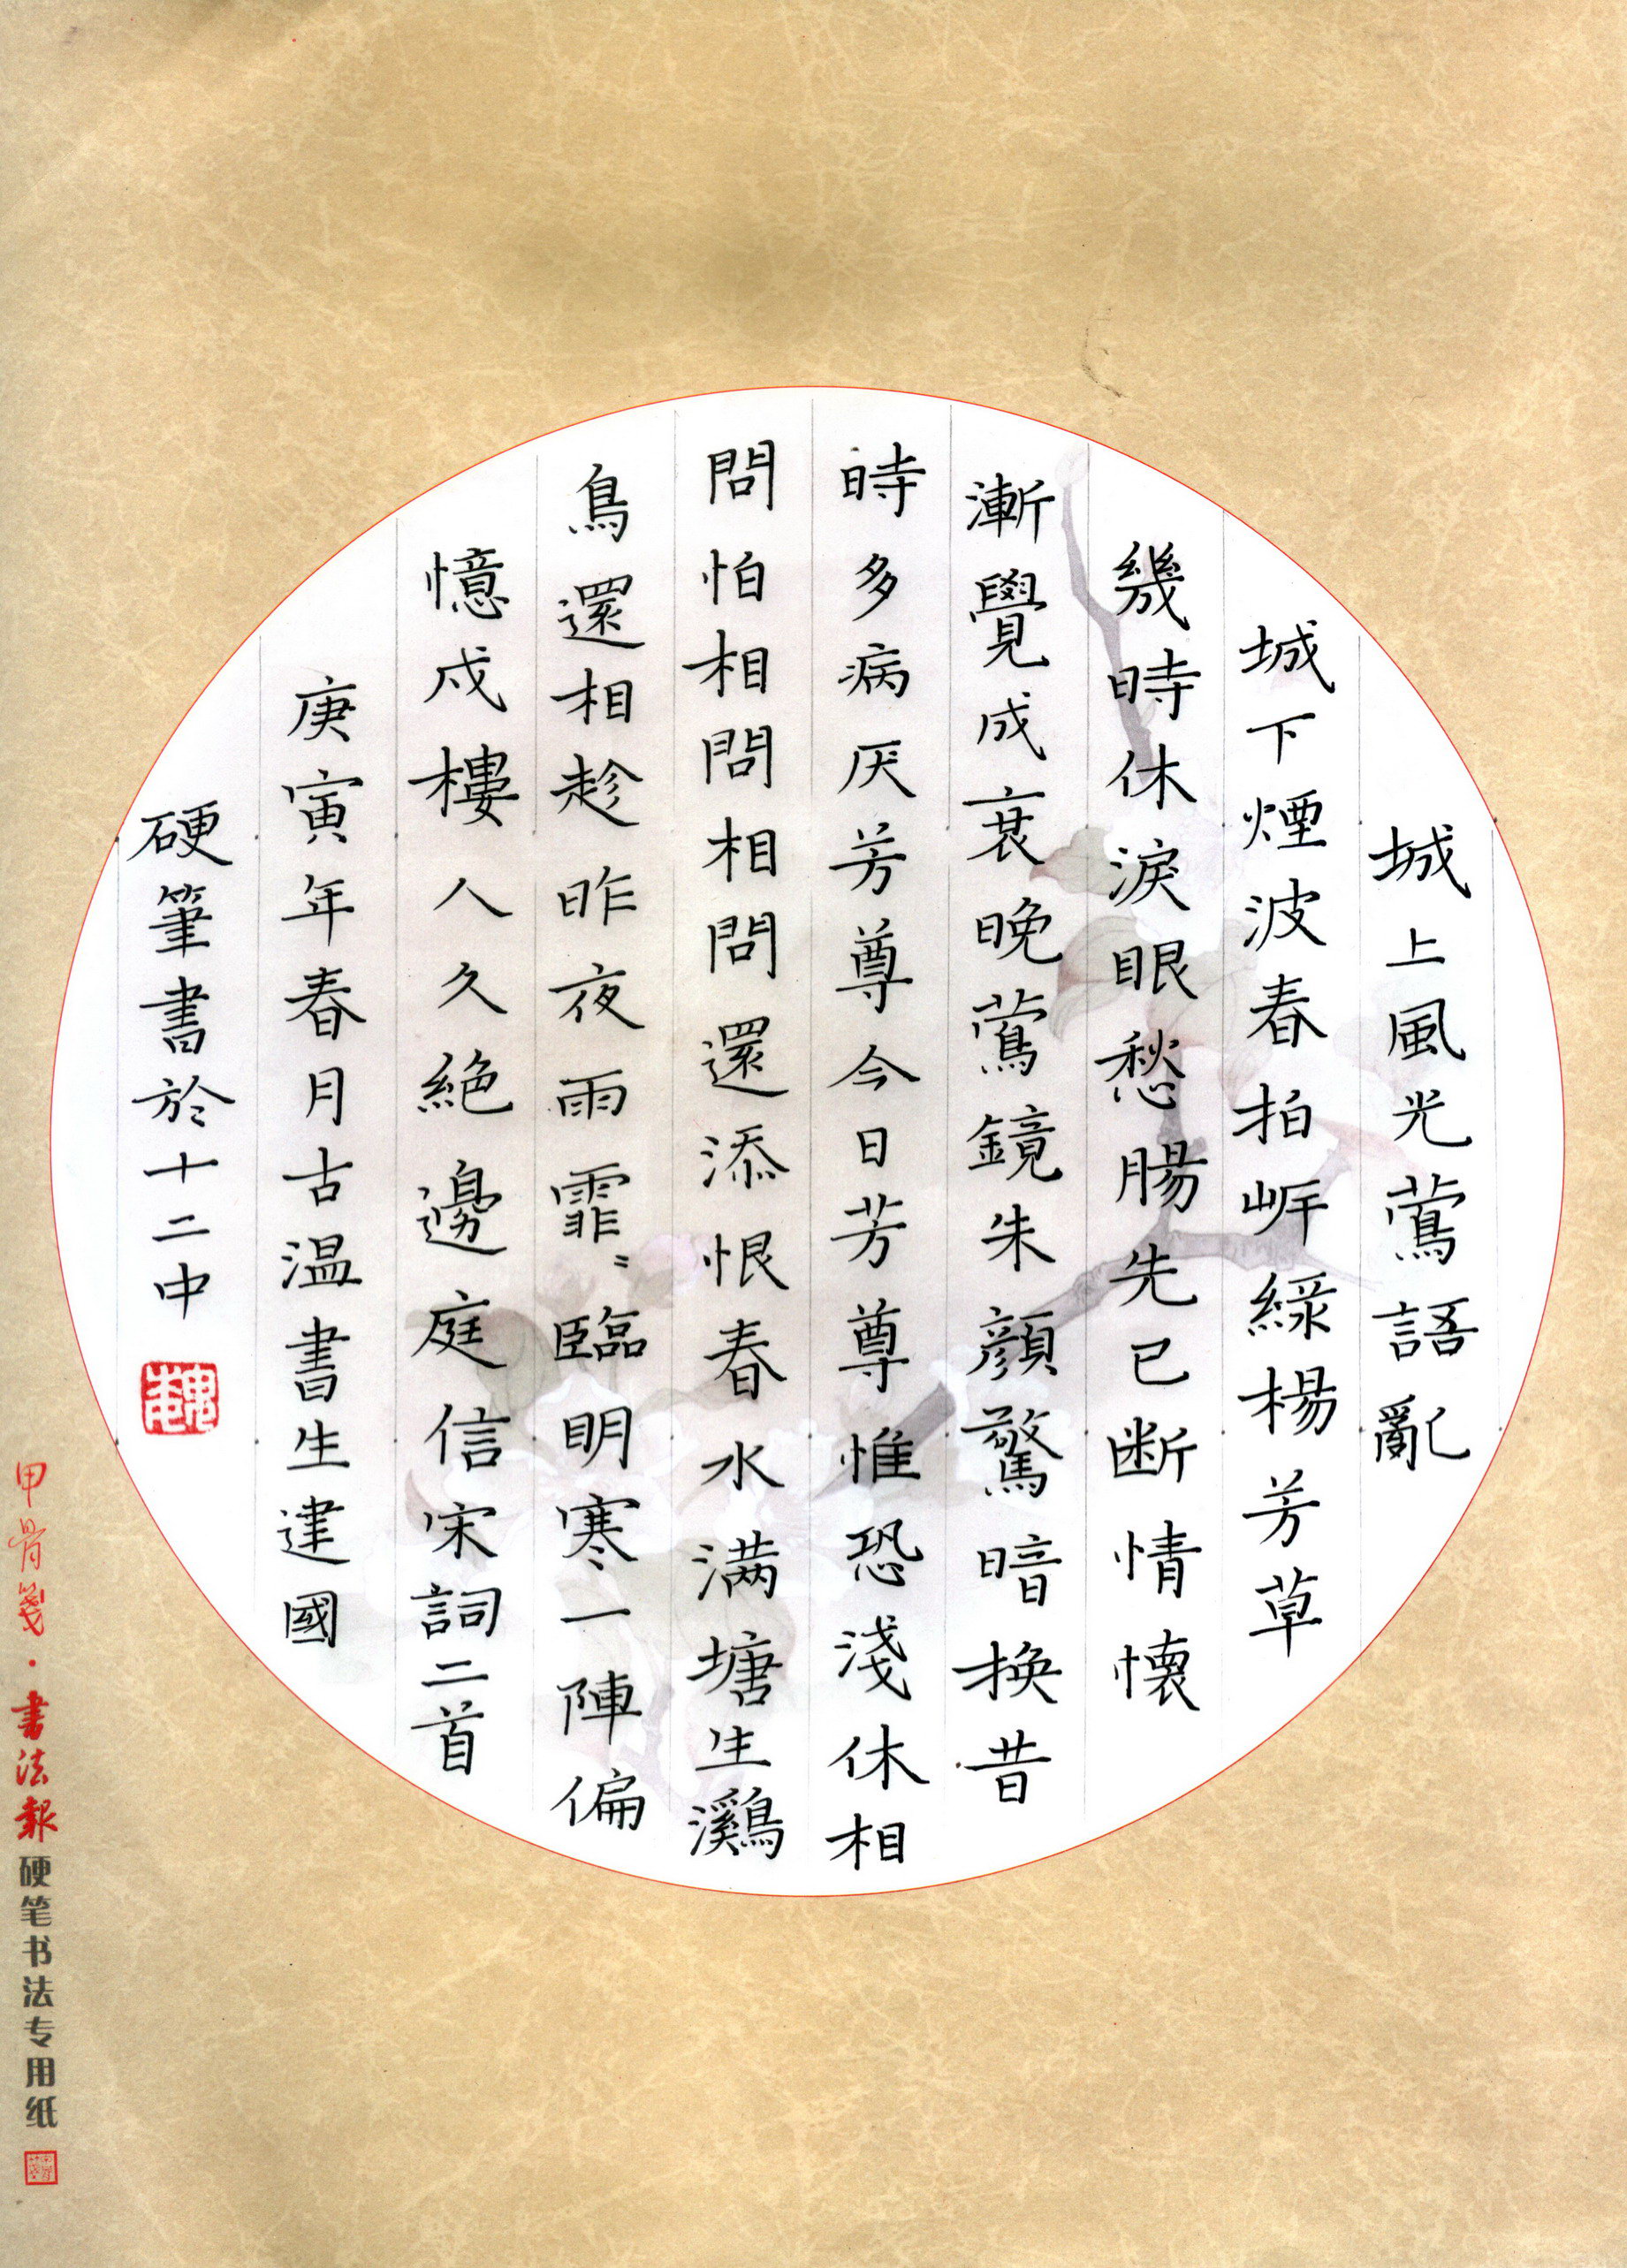 城上風光鶯語亂
城下煙波春拍岍綠楊芳草
幾時休淚眼愁腸先已断情懐
漸覺成衰晚鶯鏡朱顔驚暗换昔
時多病厌芳尊今日芳尊惟恐淺休相
問怕相問相問還添恨春水满塘生鸂
鳥還相趁昨夜雨霏〻臨明寒一陣偏
憶戍樓人久絶邊庭信宋詞二首
庚寅年春月古温書生建國
硬筆書於十二中
魏
甲骨箋·書法報硬笔书法专用纸